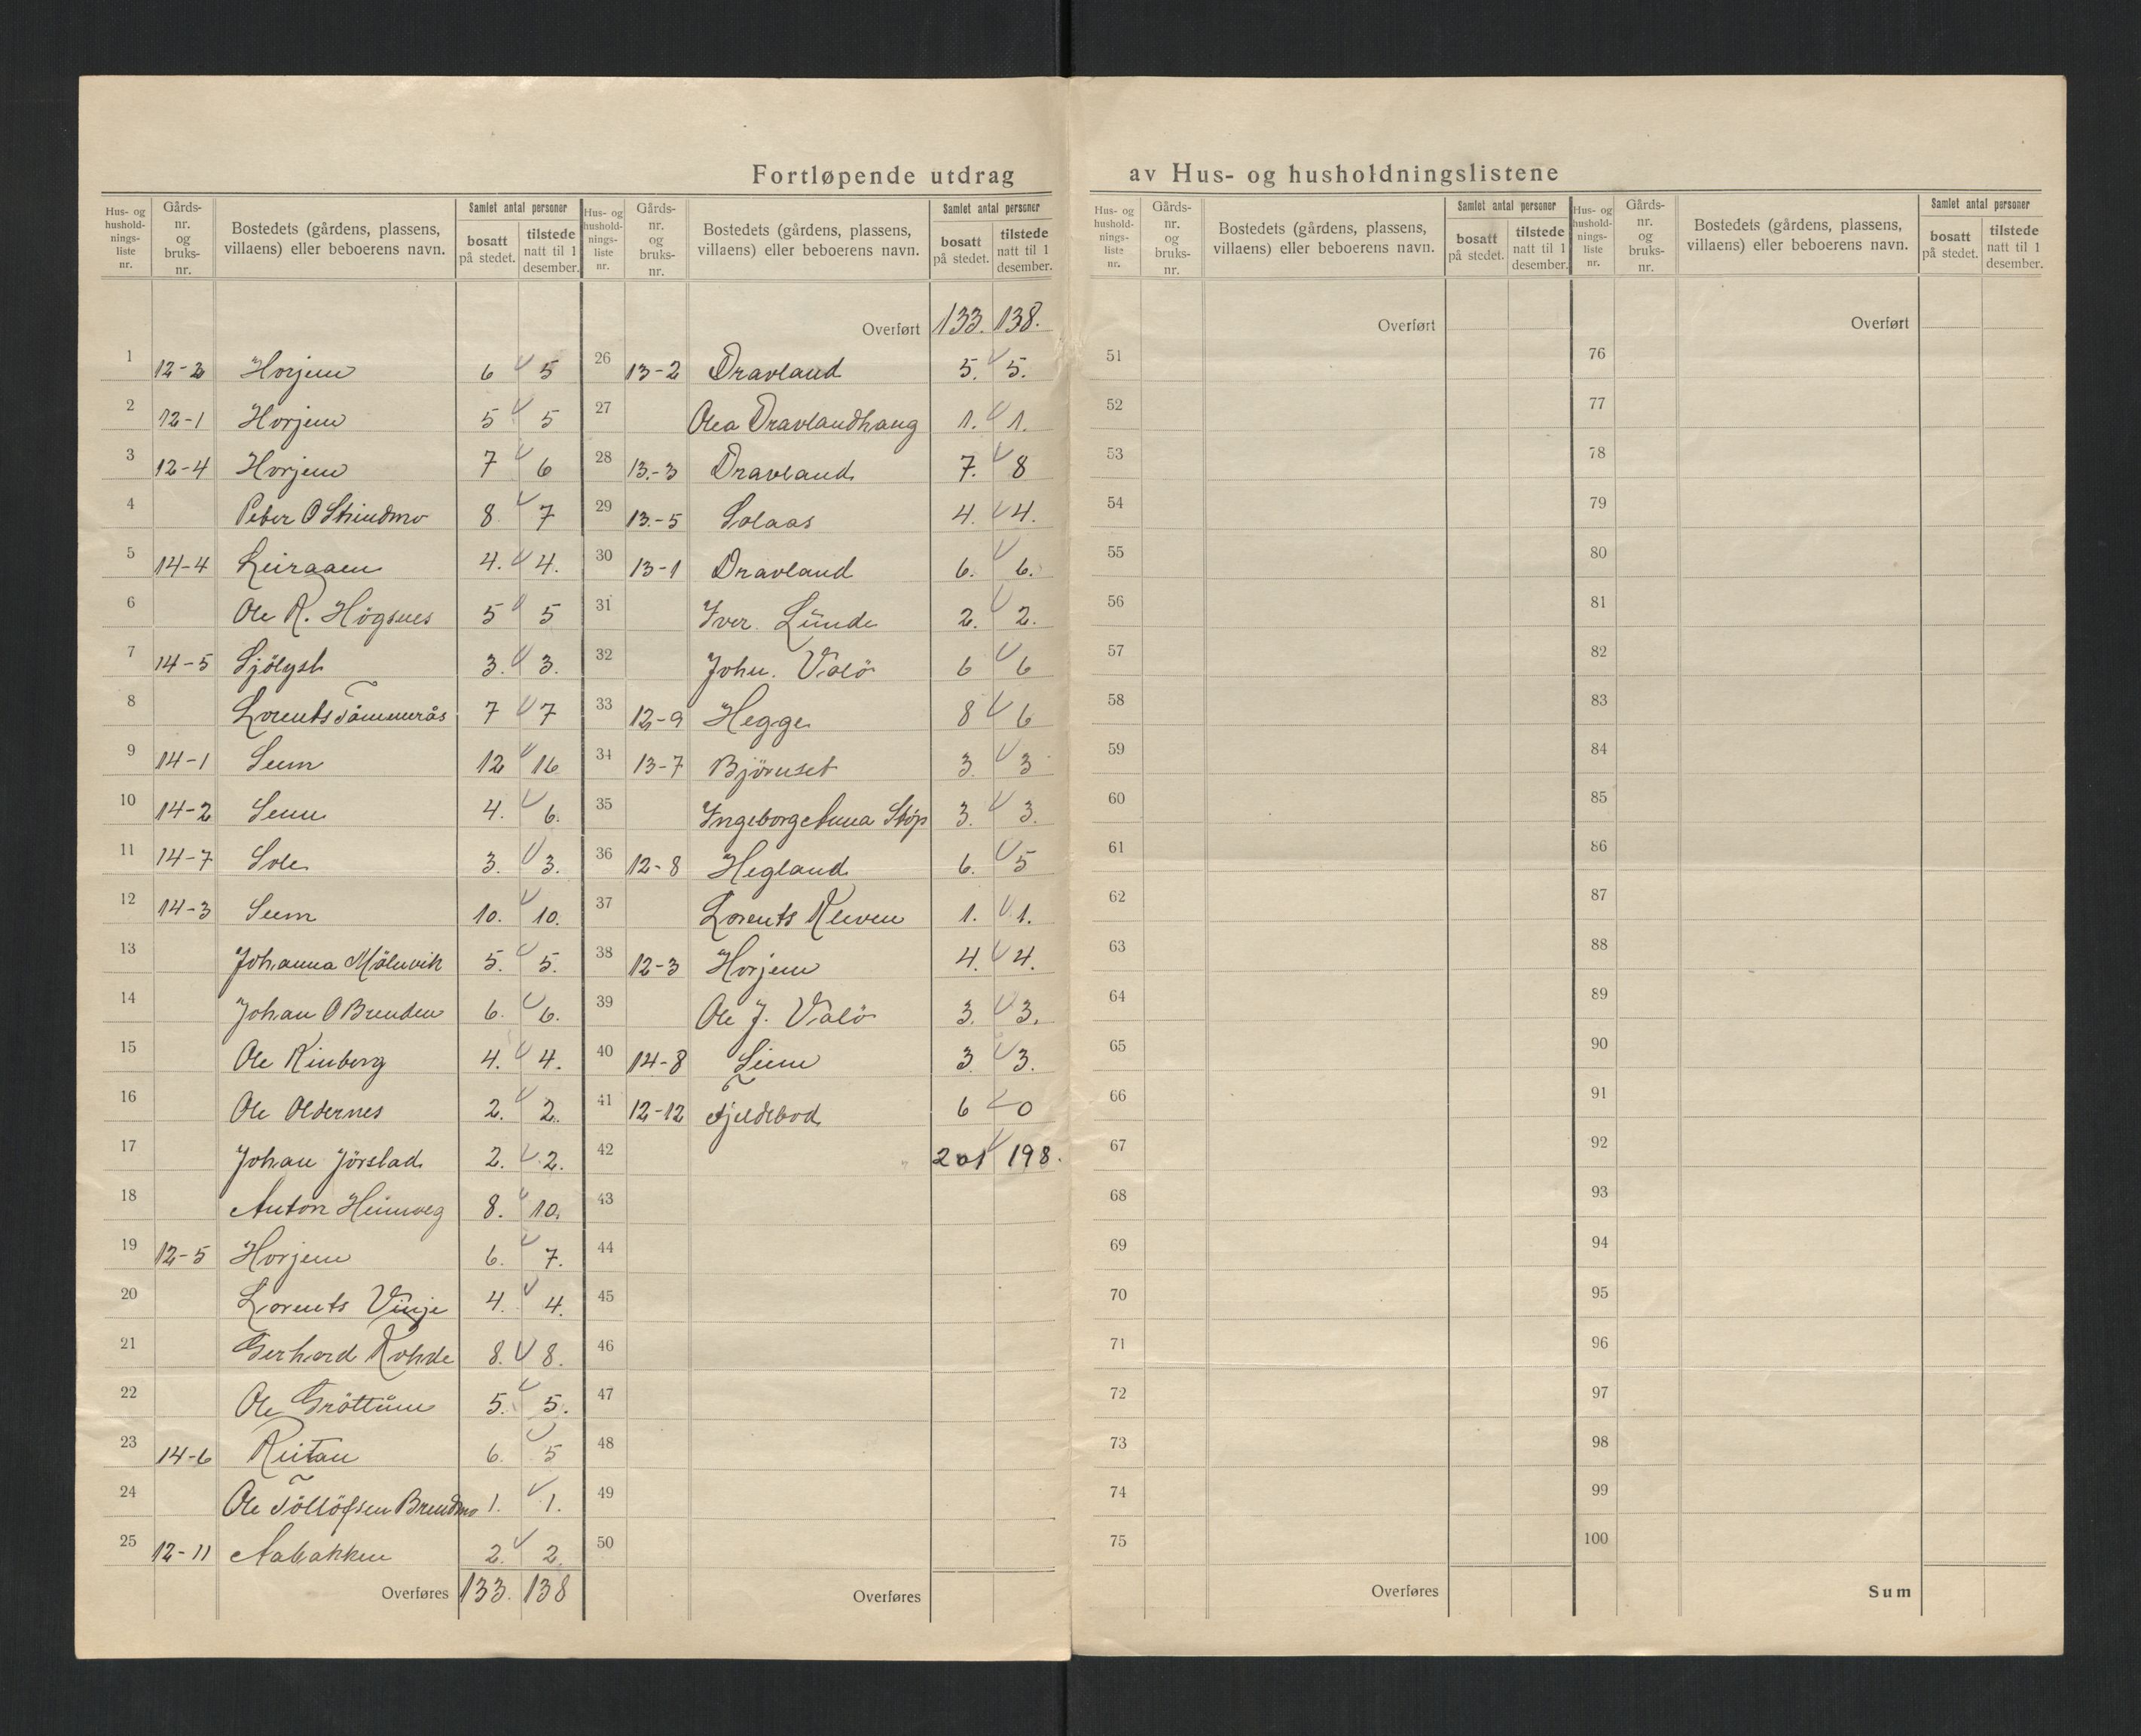 Fortløpende utdrag av Hus- og husholdningslistene
Hus- og hushold-nings-liste nr. Gårds-nr. og bruks-nr. Bostedets (gårdens, plassens, villaens) eller beboerens navn. Samlet antal personer bosatt på stedet. tilstede natt til 1 desember.
1 12-2 Horjem 6 5
2 12-1 Horjem 5 5
3 12-4 Horjem 7 6
4 Peter O Strindmo 8 7
5 14-4 Leiraaen 4. 4.
6 Ole R. Högsnes 5 5
7 14-5 Sjölyst 3. 3.
8 Lorents Tömmerås 7 7
9 14-1 Sem 12 16
10 14-2 Sem 4. 6.
11 14-7 Sole 3. 3.
12 14-3 Sem 10. 10.
13 Johanna Mölnvik 5. 5.
14 Johan O Brenden 6. 6.
15 Ole Rinberg 4. 4.
16 Ole Oldernes 2. 2.
17 Johan Jörstad 2. 2.
18 Anton Heimveg 8. 10.
19 12-5 Horjem 6. 7.
20 Lorents Vinje 4. 4.
21 Gerhard Rohde 8. 8.
22 Ole Gröttum 5. 5.
23 14-6 Reitan 6. 5
24 Ole Töllöfsen Brendmo 1. 1.
25 12-11 Aabakken 2. 2.
Overføres 133. 138
Hus- og hushold-nings-liste nr. Gårds-nr. og bruks-nr. Bostedets (gårdens, plassens, villaens) eller beboerens navn. Samlet antal personer bosatt på stedet. tilstede natt til 1 desember.
Overført 133. 138.
26 13-2 Dravland 5. 5.
27 Olea Dravlandhaug 1. 1.
28 13.-3 Dravland 7. 8
29 13.-5 Solaas 4. 4.
30 13-1 Dravland 6. 6.
31 Iver Lunde 2. 2.
32 John. Valö 6 6
33 12-9 Hegge 8 6
34 13-7 Björnset 3. 3
35 Ingeborg Anna Stöp 3. 3.
36 12-8 Hegland 6. 5
37 Lorents Kleven 1. 1.
38 12-3 Horjem 4. 4.
39 Ole J. Valö 3. 3.
40 14-8 Sem 3. 3.
41 12-12 Fjeldbod 6 0
42 201 198.
43
44
45
46
47
48
49
50
Overføres
Hus- og hushold-nings-liste nr. Gårds-nr. og bruks-nr. Bostedets (gårdens, plassens, villaens) eller beboerens navn. Samlet antal personer bosatt på stedet. tilstede natt til 1 desember.
Overført
51
52
53
54
55
56
57
58
59
60
61
62
63
64
65
66
67
68
69
70
71
72
73
74
75
Overføres
Hus- og hushold-nings-liste nr. Gårds-nr. og bruks-nr. Bostedets (gårdens, plassens, villaens) eller beboerens navn. Samlet antal personer bosatt på stedet. tilstede natt til 1 desember.
Overført
76
77
78
79
80
81
82
83
84
85
86
87
88
89
90
91
92
93
94
95
96
97
98
99
100
Sum